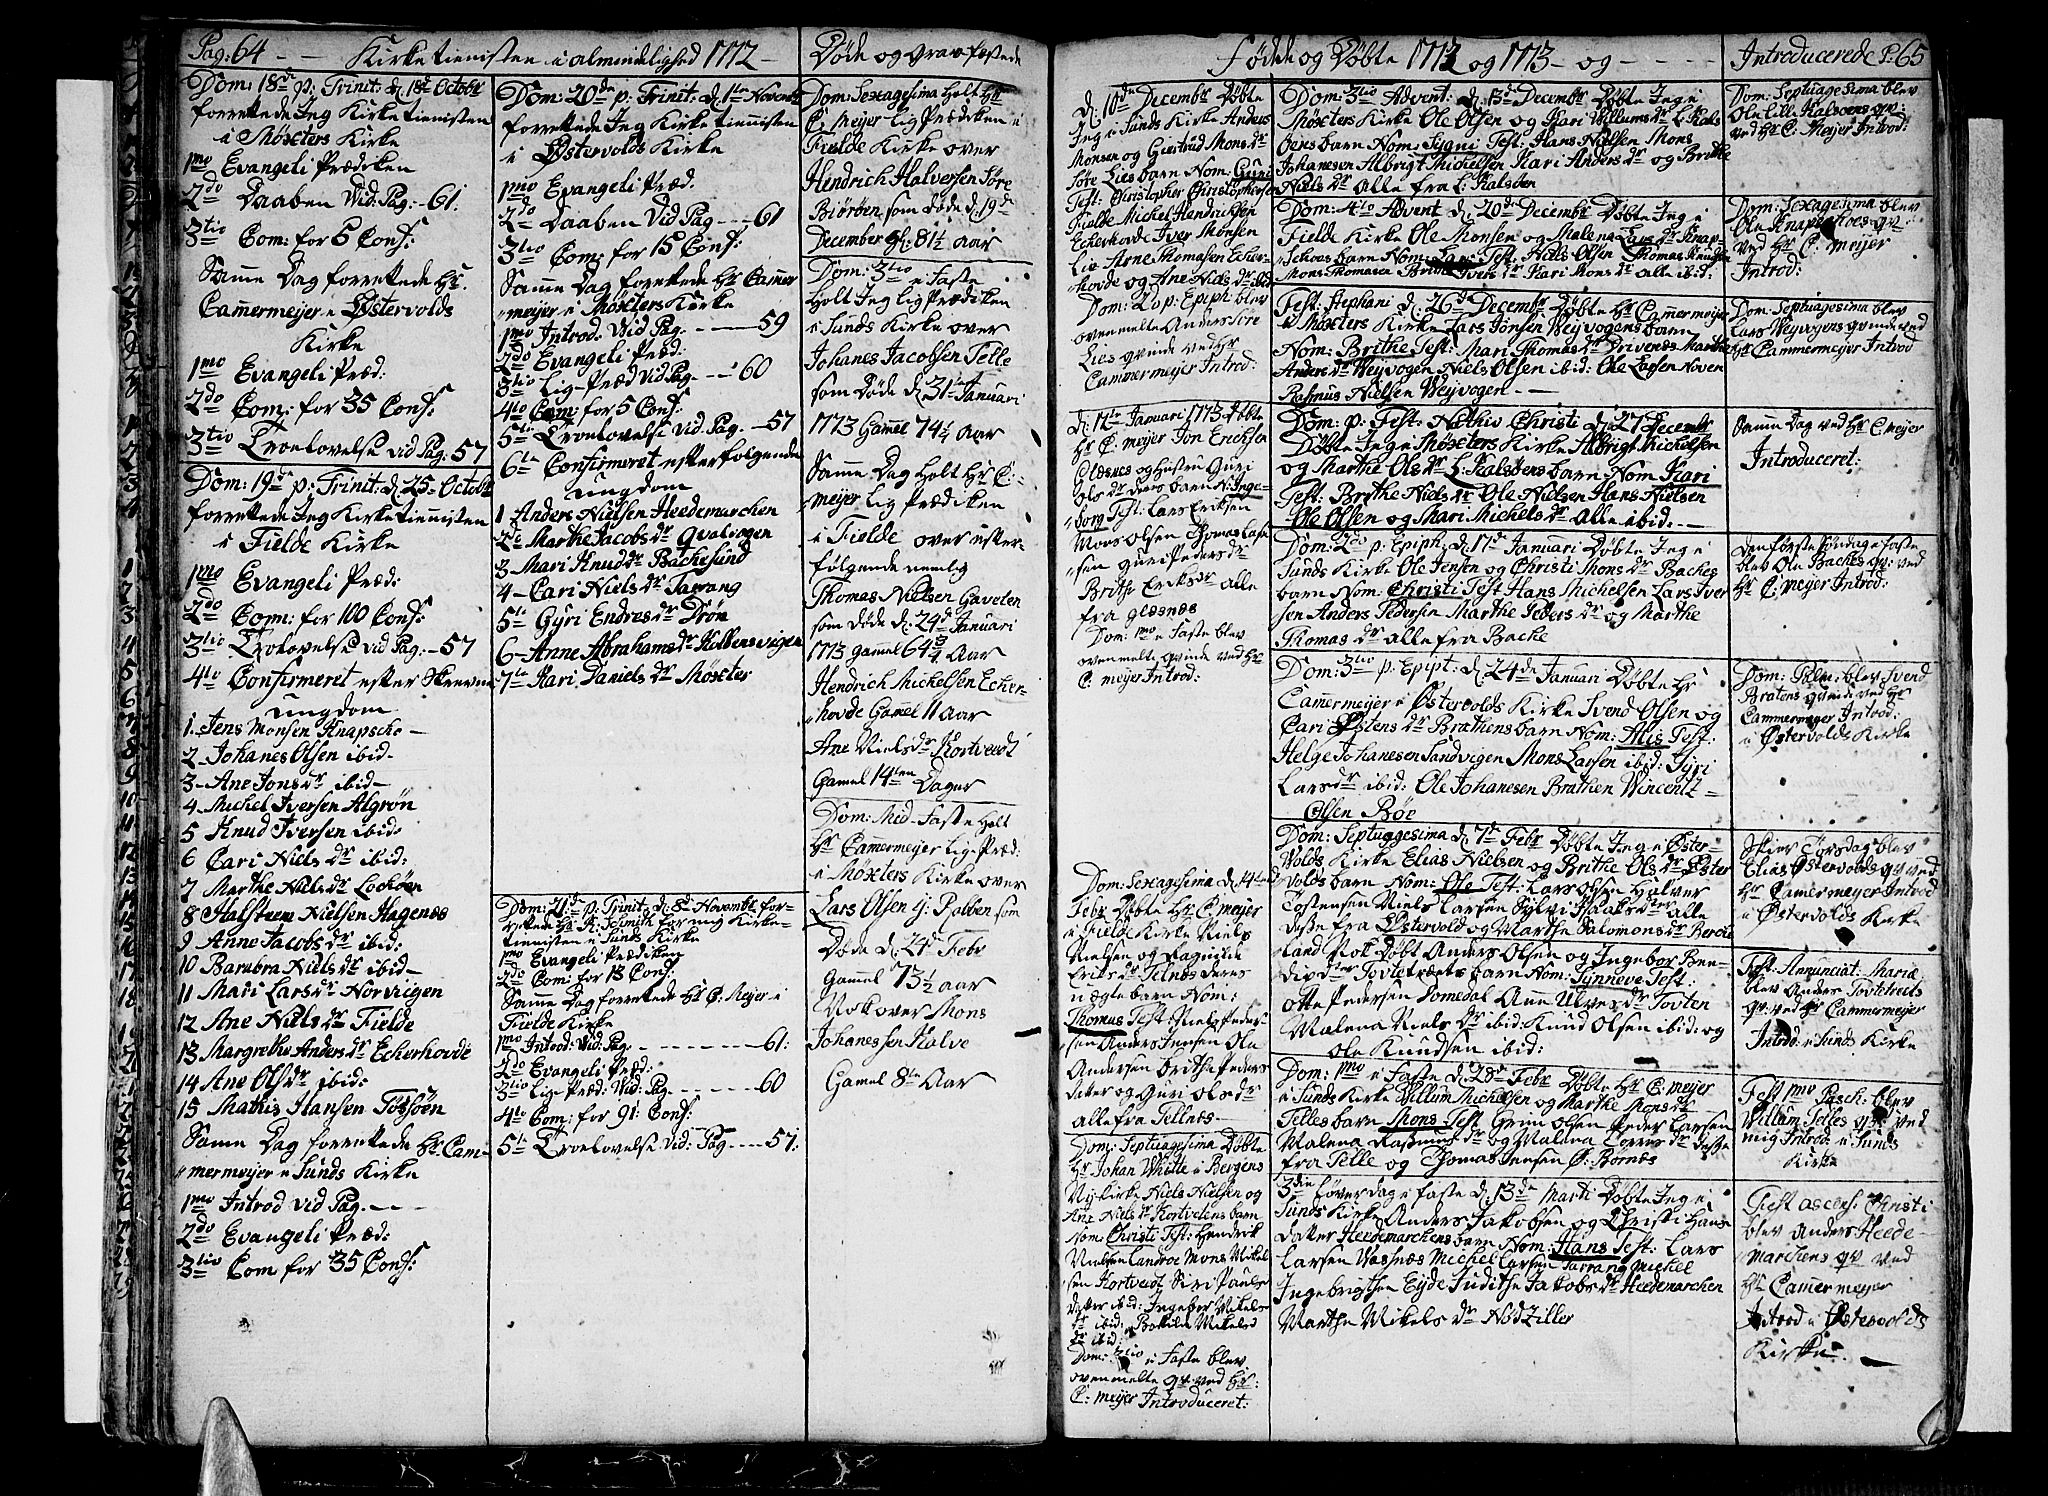 Pag: 64 - - Kirketienisten i almindelighed 1772 -
Dom: 18de p: Trinit: d: 18de Octobr
forrettede Jeg Kirketienisten
i Møxters Kirke
1mo Evangeli Prædiken
2do Daaben Vid: Pag: - 61:
3tio Com: for 5 Conf:
Samme Dag forrettede Hr:
Cammermeijer i Østervolds
Kirke
1mo Evangeli Præd:
2do Com: for 35 Conf:
3tio Troelovelse vid Pag: 57
Dom: 19de p: Trinit: d: 25 Octobr
forrettede Jeg Kirketiennisten
i Fielde Kirke
1mo Evangeli Præd:
2do Com: for 100 Conf:
3tio Trolovelse vid Pag: - 57
4to Confirmeret efter Skrevne
ungdom
1. Jens Monsen Knapscho -
2 Johanes Olsen ibid -
3 - Ane Jonsdr ibid -
4 Michel Iversen Algrøn
5 Knud Iversen ibid:
6 Cari Nielsdr ibid:
7 Marthe Nielsdr Lochøen
8 Halsteen Nielsen Hagenæs
9 Anne Jacobsdr ibid:
10 Barabra Nielsdr ibid -
11 Mari Larsdr Norvigen
12 Ane Nielsdr Fielde
13 Margrethe Andersdr Echerhovde
14 Ane Olsdr ibid:
15 Mathis Hansen Tøtsøen
Samme Dag forrettede Hr: Cam-
mermeijer i Sunds Kirke
1mo Introd vid Pag. - - -
2do Evangeli Præd:
3tio Com: for 35 Conf:
Dom: 20de p: Trinit: d: 1te Novembr
forrettede Jeg Kirketiennisten
i Østervolds Kirke
1mo Evangeli Præd.
2do Daaben Vid Pag - - - 61
3tio Com: for 15 Conf:
Samme Dag forrettede Hr Cammer
meijer i Møxters Kirke
1mo Introd. Vid Pag. - - - 59
2do Evangeli Præd:
3tio Lig-Præd Vid Pag. - - - 60
4to Com: for 5 Conf:
5to Troelovelse Vid. Pag. - 57
6te Confirmeret efterfølgende
ungdom
1 Anders Nielsen Heedemarchen
2do Marthe Jacobsdr Qvalvogen
3 - Mari Knudsdr Bachesund
4 - Cari Nielsdr Tarrang
5te Gyri Endresdr Drøn
6 - Anne Abrahamsdr Kolbensvigen
7te Kari Danielsdr Møxter
Dom: 21de p: Trinit: d: 8de Novembr for-
rettede Hr R: Schmidt for mig Kirke-
tienisten i Sunds Kirke
1mo Evangeli Prædiken
2do Com: for 13 Conf:
Samme Dag forrettede Hr C: Meijer i
Fielde Kirke
1mo Introd: Vid: Pag. - - - 61:
2do Evangeli Præd:
3tio Lig-Præd: Vid: Pag. - - - 60
4to Com: for 91: Conf:
5te Troelovelse Vid: Pag - - - 57:
Døde og Gravfæstede
Dom: Sexagesima Holt Hr
C: Meijer Lig Prædiken i
Fielde Kirke over
Hendrich Halversen Søre
Biørøen som døde d: 19de
December gl: 81½ Aar
Dom: 3tio i Faste
Holt Jeg Lig Prædiken
i Sunds Kirke over
Johanes Jacobsen Telle
som Døde d: 31te Januari
1773 Gamel 74¼ Aar
Samme Dag Holt Hr C:
meijer Lig Prædiken
i Fielde over efter-
følgende nemlig
Thomas Nielsen Gavelen
som døde d: 24de Januari
1773 gammel 64¾ Aar
Hendrich Michelsen Echer-
hovde Gamel 11 Aar
Ane Nielsdr Kortvedt
Gamel 14ten Dager
Dom: Med-Faste Holt
Hr Cammermeijer Lig-Præd:
i Møxters Kirke over
Lars Olsen G: Rabben som
Døde d: 24de Febr
Gammel 73½ Aar
Nok over Mons
Johanessen Kalve
Gamel 8te Aar
Fødde og Døbte 1772 og 1773 - og - - - -
d: 10de Decembr Døbte
Jeg i Sunds Kirke Anders
Monsen og Giertrud Monsdr
Søre Lies barn Nom: Guri
Test: Christopher Christophersen
Fielde Michel Hendrichsen
Echerhovde Iver Monsen
Lie Arne Thomasen Echer-
hovde og Ane Nielsdr ibid
Dom: 2do p: Epiph blev
ovenmelte Anders Søre
Lies qvinde ved Hr
Cammermeijer Introd:
d: 12te Januari 1773 Døbte
Hr C: meijer Jon Erichsen
Glesnes og Hustru Guri
Olsdr deres barn N: Inge-
borg Test: Lars Ericksen
Mons Olsen Thomas Las-
sen Guri Pedersdr
Brithe Ericksdr alle
fra Glesnæs
Dom: 1mo i Faste blev
ovenmelte qvinde ved Hr
C: meijer Introd:
Dom: Sexagesima d: 14tend
Febr Døbte Hr C: meijer
i Fielde Kirke Niels
Nielsen og Ragnilde
Eriksdr Telnæs deres
uægte barn Nom:
Thomas Test: Niels Peders-
sen Anders Jensen Ole
Andersen Brithe Peders
dater og Guri Olesdr
alle fra Tellnes -
Dom: Septuagesima Døbte
Hr Johan Whitte i Bergens
Nykirke Niels Nielsen og
Ane Nielsdr Kortvetens barn
Nom: Christi Test: Henderik
Nielsen Landroe Mons Mikel
sen Kortvedt Siri Pauls
datter ibid: Ingebor Mikels
dr ibid: Bothilde Mikelsd
dr ibid:
Dom: 3tio i Faste blev
ovenmelte qv: ved Hr:
C: meijer Introduceret:
Dom: 3tio Advent: d: 13de Decembr Døbte Jeg i
Møxters Kirke Ole Olsen og Kari Willumsdr L: Kals
øens barn Nom: Sygni Test: Hans Nielsen Mons
Johanesen Albrigt Michelsen Kari Andersdr og Brithe
Nielsdr Alle fra L: Kalsøen
Dom: 4to Advent d: 20de Decembr Døbte Jeg i
Fielde Kirke Ole Monsen og Malena Larsdr Knap-
schoes barn Nom: Lars Test: Niels Olsen Thomas Knudsen
Mons Thomasen Brithe Iversdr Kari Monsdr alle ibid:
Fest: Stephani d: 26de Decembr Døbte Hr Cammermeijer
i Møxters Kirke Lars Jonsen Weyvogens barn
Nom: Brithe Test: Mari Thomasdr Drivenæs Marthe
Andersdr Weyvogen Niels Olsen ibid: Ole Larsen Noven
Rasmus Nielsen Weyvogen -
Dom: p: Fest: Nathiv Christi d: 27 Decembr
Døbte Jeg i Møxters Kirke Albrigt Michelsen
og Marthe Olsdr L: Kalsøens barn Nom Kari
Test: Brithe Nielsdr Ole Nielsen Hans Nielsen
Ole Olsen og Mari Michelsdr Alle ibid: -
Dom: 2do p: Epiph: d: 17de Januari Døbte Jeg i
Sunds Kirke Ole Jensen og Christi Monsdr Baches
barn Nom: Christi Test Hans Michelsen Lars Iver
sen Anders Pedersen Marthe Pedersdr og Marthe
Thomasdr alle fra Bache
Dom: 3tio p: Epipt: d: 24de Januari Døbte Hr
Camermeijer i Østervolds Kirke Svend Olsen og
Cari Østensdr Brathens barn Nom: Alis Test:
Helge Johanesen Sandvigen Mons Larsen ibid: Gyri
Larsdr ibid: Ole Johanesen Brathen Wincentz
Olsen Bøe
Dom: Septuagesima d: 7de Febr Døbte Jeg i Øster
Volds Kirke Elias Nielsen og Brithe Olsdr Øster
Volds barn Nom: Ole Test: Lars Olsen Halver
Tostensen Niels Larsen Sylvi Isaaksdter alle
Desse fra Østervold og Marthe Salomonsdr Berche
land Nok Døbt Anders Olsen og Ingebor Bene-
dixdter Tovtetræts barn Nom: Synneve Test:
Otte Pedersen Somedal Ane Ulvesdr Tovten
Malena Nielsdr ibid: Knud Olsen ibid: og
Ole Knudsen ibid:
Dom: 1mo i Faste d: 28de Febr Døbte Hr C: meijer
i Sunds Kirke Willum Michelsen og Marthe Monsdr
Telles barn Mons Test: Grim Olsen Peder Larsen
Malena Rasmusdr og Malena Lorrisdr desse
fra Telle og Thomas Jensen Ø: Børnes
3die Løverdag i Faste d: 13de Marti Døbte Jeg i
Sunds Kirke Anders Jakobsen og Christi Hans
datter Heedemarchens barn Nom: Hans Test: Lars
Larsen Vasnæs Michel Larsen Tarrang Michel
Ingebrigtsen Eyde Judithe Jakobsdr Heedemarchen
Marthe Mikelsdr Nodziller
Introducerede P: 65
Dom: Septuagesima blev
Ole Lille Kalsøens qv:
ved Hr C: Meijer Introd:
Dom: Sexagesima blev
Ole Knapschoes qv:
ved Hr C: meijer
Introd:
Dom: Septuagesima blev
Lars Weyvogens qvinde ved
Hr Cammermeijer Introd
Samme Dag ved Hr C: meijer
Introduceret:
Den første Søndag i Faste
blev Ole Baches qv: ved
Hr C: meijer Introd:
Dom: Palm: blev Svend
Bratens qvinde ved Hr
Cammermeyer Introd:
i Østervolds Kirke
Skier Torsdag blev
Elias Østervolds qv ved
Hr Camermeijer Introd
i Østervolds Kirke
Fest: Annunciat: Mariæ
blev Anders Tovtetreits
qv: ved Hr Cammermeijer
Introd: i Sunds Kirke
Fest 1mo Pasch: blev
Willum Telles qv: ved
mig Introd: i Sunds
Kirke
Fest ascens: Christi
blev Anders Heede-
marchens qv ved
Hr Cammermeijer
Introd i Østervolds
Kirke. -